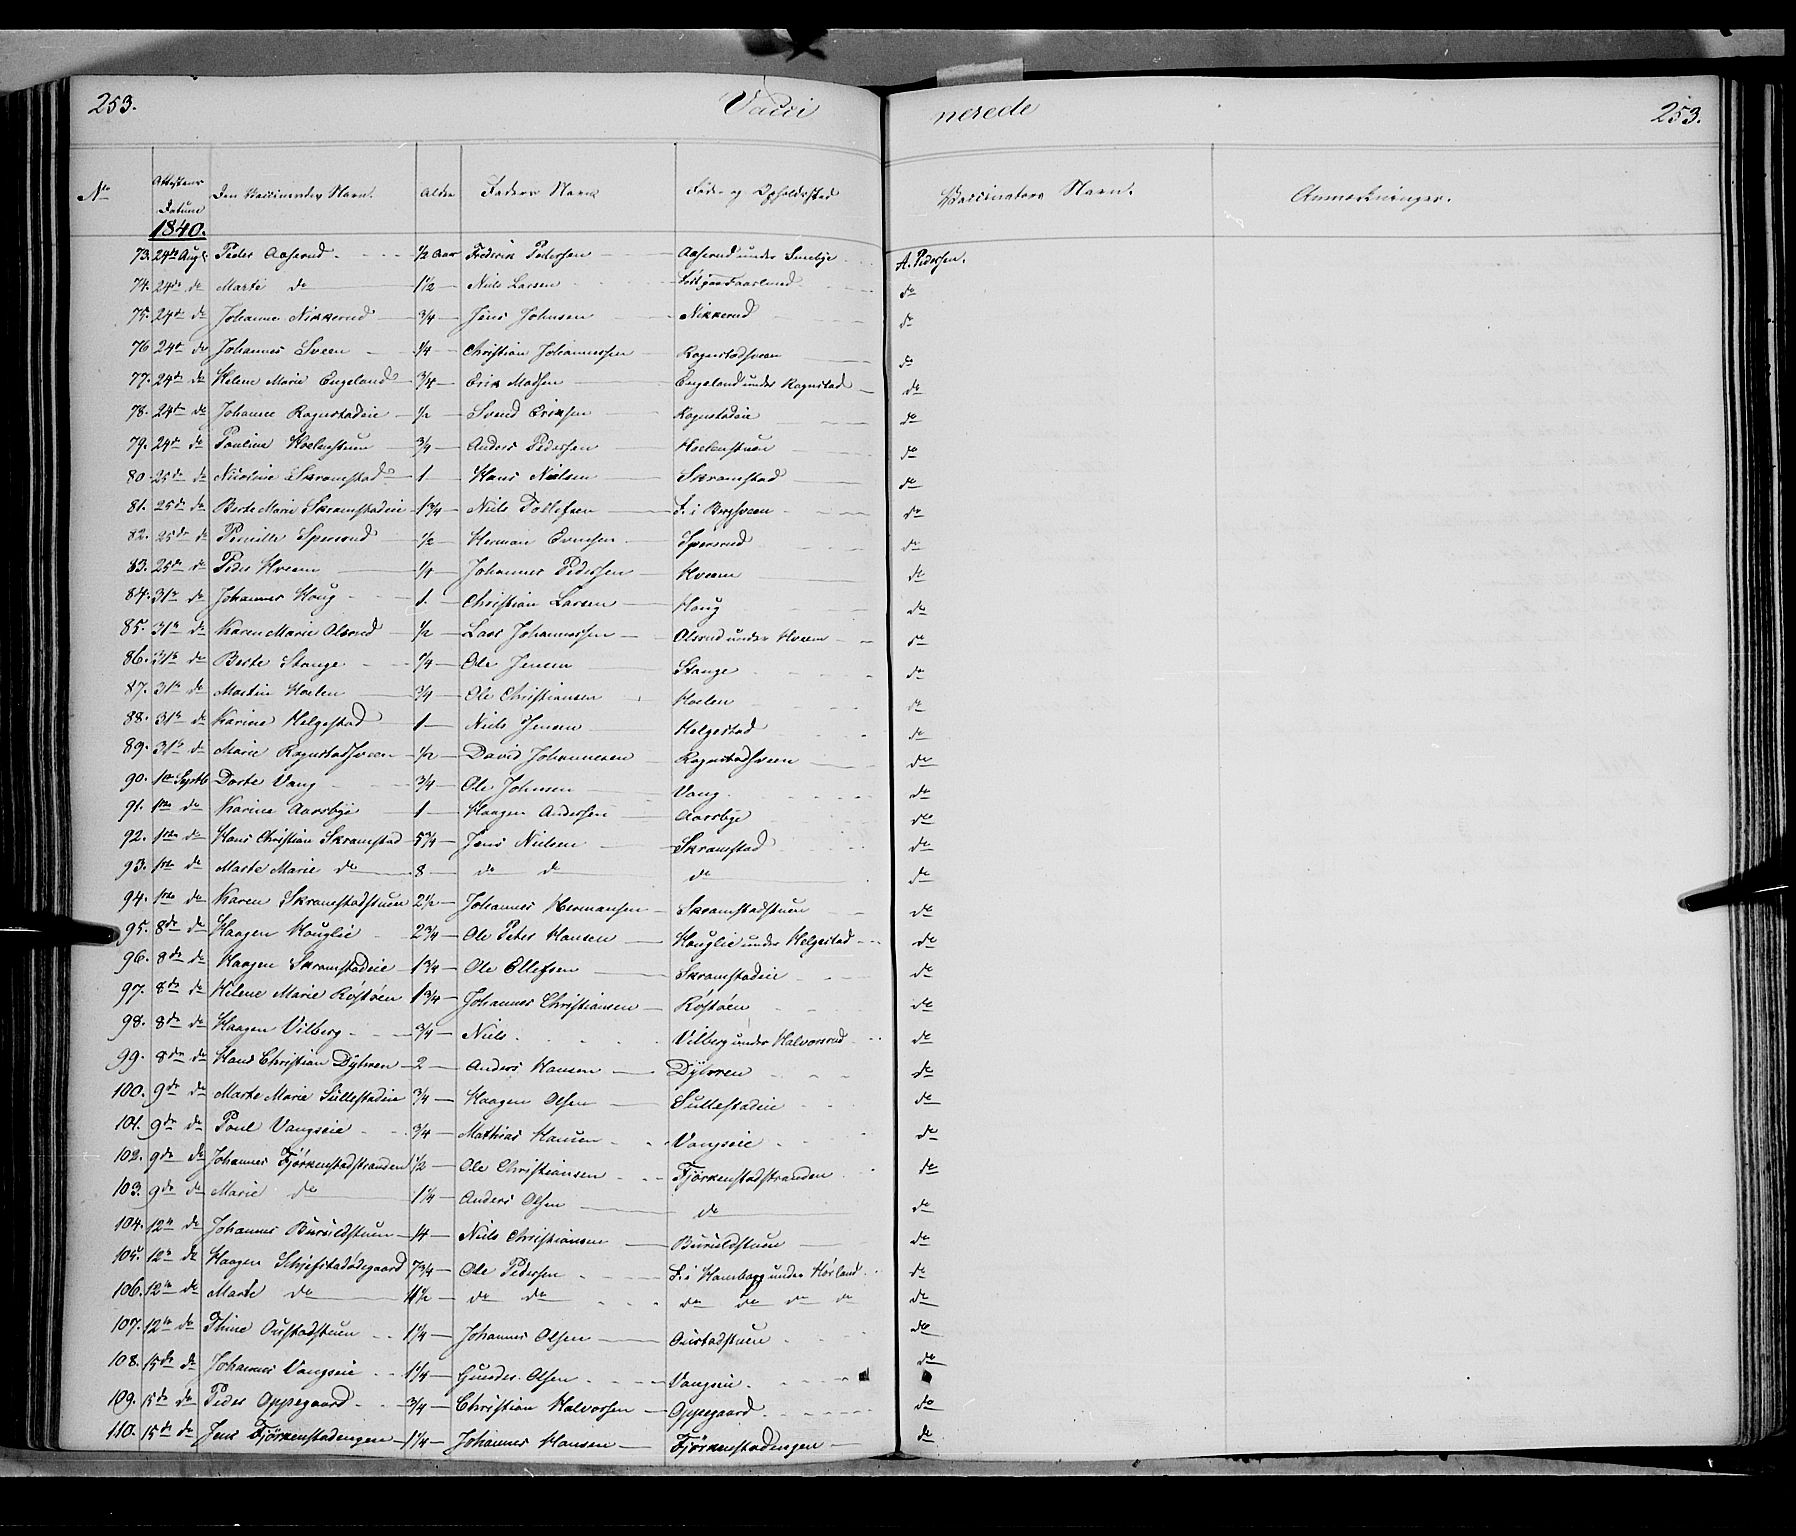 253. Vacci nerede 253.
No Attestens Datum Den Vaccineredes Navn. Alder Faders Navn Føde- og Opholdssted Vaccinators Navn. Anmærkninger.
1840.
73. 24de Augs Peder Aaserud ½ Aar Frederik Pedersen Aaserud under Smebye A. Pedersen.
74. 24de do Marte do 1½ Niels Larsen do
75. 24de do Johanne Nikkerud ¾ Jens Johnsen Nikkerud do
76 24de do Johannes Sveen ¼ Christian Johannessen Rognstadsveen do
77. 24de do Helene Marie Engeland ¾ Erik Madsen Engeland under Rognstad do
78. 24de do Johanne Rognstadeie ½ Svend Eriksen Rognstadeie do
79. 24de do Pauline Hoelenstuen ¾ Anders Pedersen Hoelenstuen do
80. 25de do Nicoline Skramstad 1 Hans Nielsen Skramstad do
81. 25de do Berte Marie Skramstadeie 1¾ Niels Tollefsen F. i Bergsveen do
82. 25de do Pernille Spersrud ½ Herman Evensen Spersrud do
83. 25de do Peder Hveem ¼ Johannes Pedersen Hveem do
84. 31te do Johannes Houg 1. Christian Larsen Houg do
85. 31te do Karen Marie Olsrud ½ Lars Johannessen Olsrud under Hveem do
86. 31te do Berte Stange ¼ Ole Jensen Stange do
87. 31te do Martin Hoelen ¾ Ole Christiansen Hoelen do
88. 31te do Karine Helgestad 1 Niels Jensen Helgestad do
89. 31te do Marie Rognstadsveen ½ David Johannesen Rognstadsveen do
90. 1ste Septb Dorte Vang ¾ Ole Johnsen Vang do
91. 1ste do Karine Aarsbye 1 Haagen Andersen Aarsbye do
92. 1ste do Hans Christian Skramstad 5¾ Jens Nielsen Skramstad do
93. 1ste do Marte Marie do 8 do do do do
94. 1ste do Karen Skramstadstuen 2½ Johannes Hermansen Skramstadstuen do
95. 8de do Haagen Houglie 2¾ Ole Peter Hansen Houglie under Helgestad do
96. 8de do Haagen Skramstadeie 1¾ Ole Ellefsen Skramstadeie do
97. 8de do Helene Marie Røstøen 1¾ Johannes Christiansen Røstøen do
98. 8de do Haagen Vilberg ¾ Niels Vilberg under Halvorsrud do
99. 8de do Hans Christian Dybveen 2 Anders Hansen Dybveen do
100. 9de do Marte Marie Sullestadeie ¾ Haagen Olsen Sullestadeie do
101. 9de do Poul Vangseie ¾ Mathias Hansen Vangseie do
102. 9de do Johannes Fjørkenstadstranden ½ Ole Christiansen Fjørkenstadstranden do
103. 9de do Marie do 1¼ Anders Olsen do do
104. 12te do Johannes Buruldstuen 14 Niels Christiansen Buruldstuen do
105. 12te do Haagen Schjefstadødegaard 7¾ Ole Pedersen F. i under Hørland do
106. 12te do Marte do 11½ do do do do do do do
107. 12te do Thine Oustadstuen 1¼ Johannes Olsen Oustadstuen do
108. 15de do Johannes Vangseie 1¼ Gunder Olsen Vangseie do
109. 15de do Peder Oppegaard ¾ Christian Halvorsen Oppegaard do
110. 15de do Jens Fjørkenstadengen 1¼ Johannes Hansen Fjørkenstadengen do